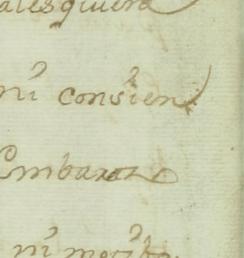 alesquiera
ni consien
Embarazo
ni